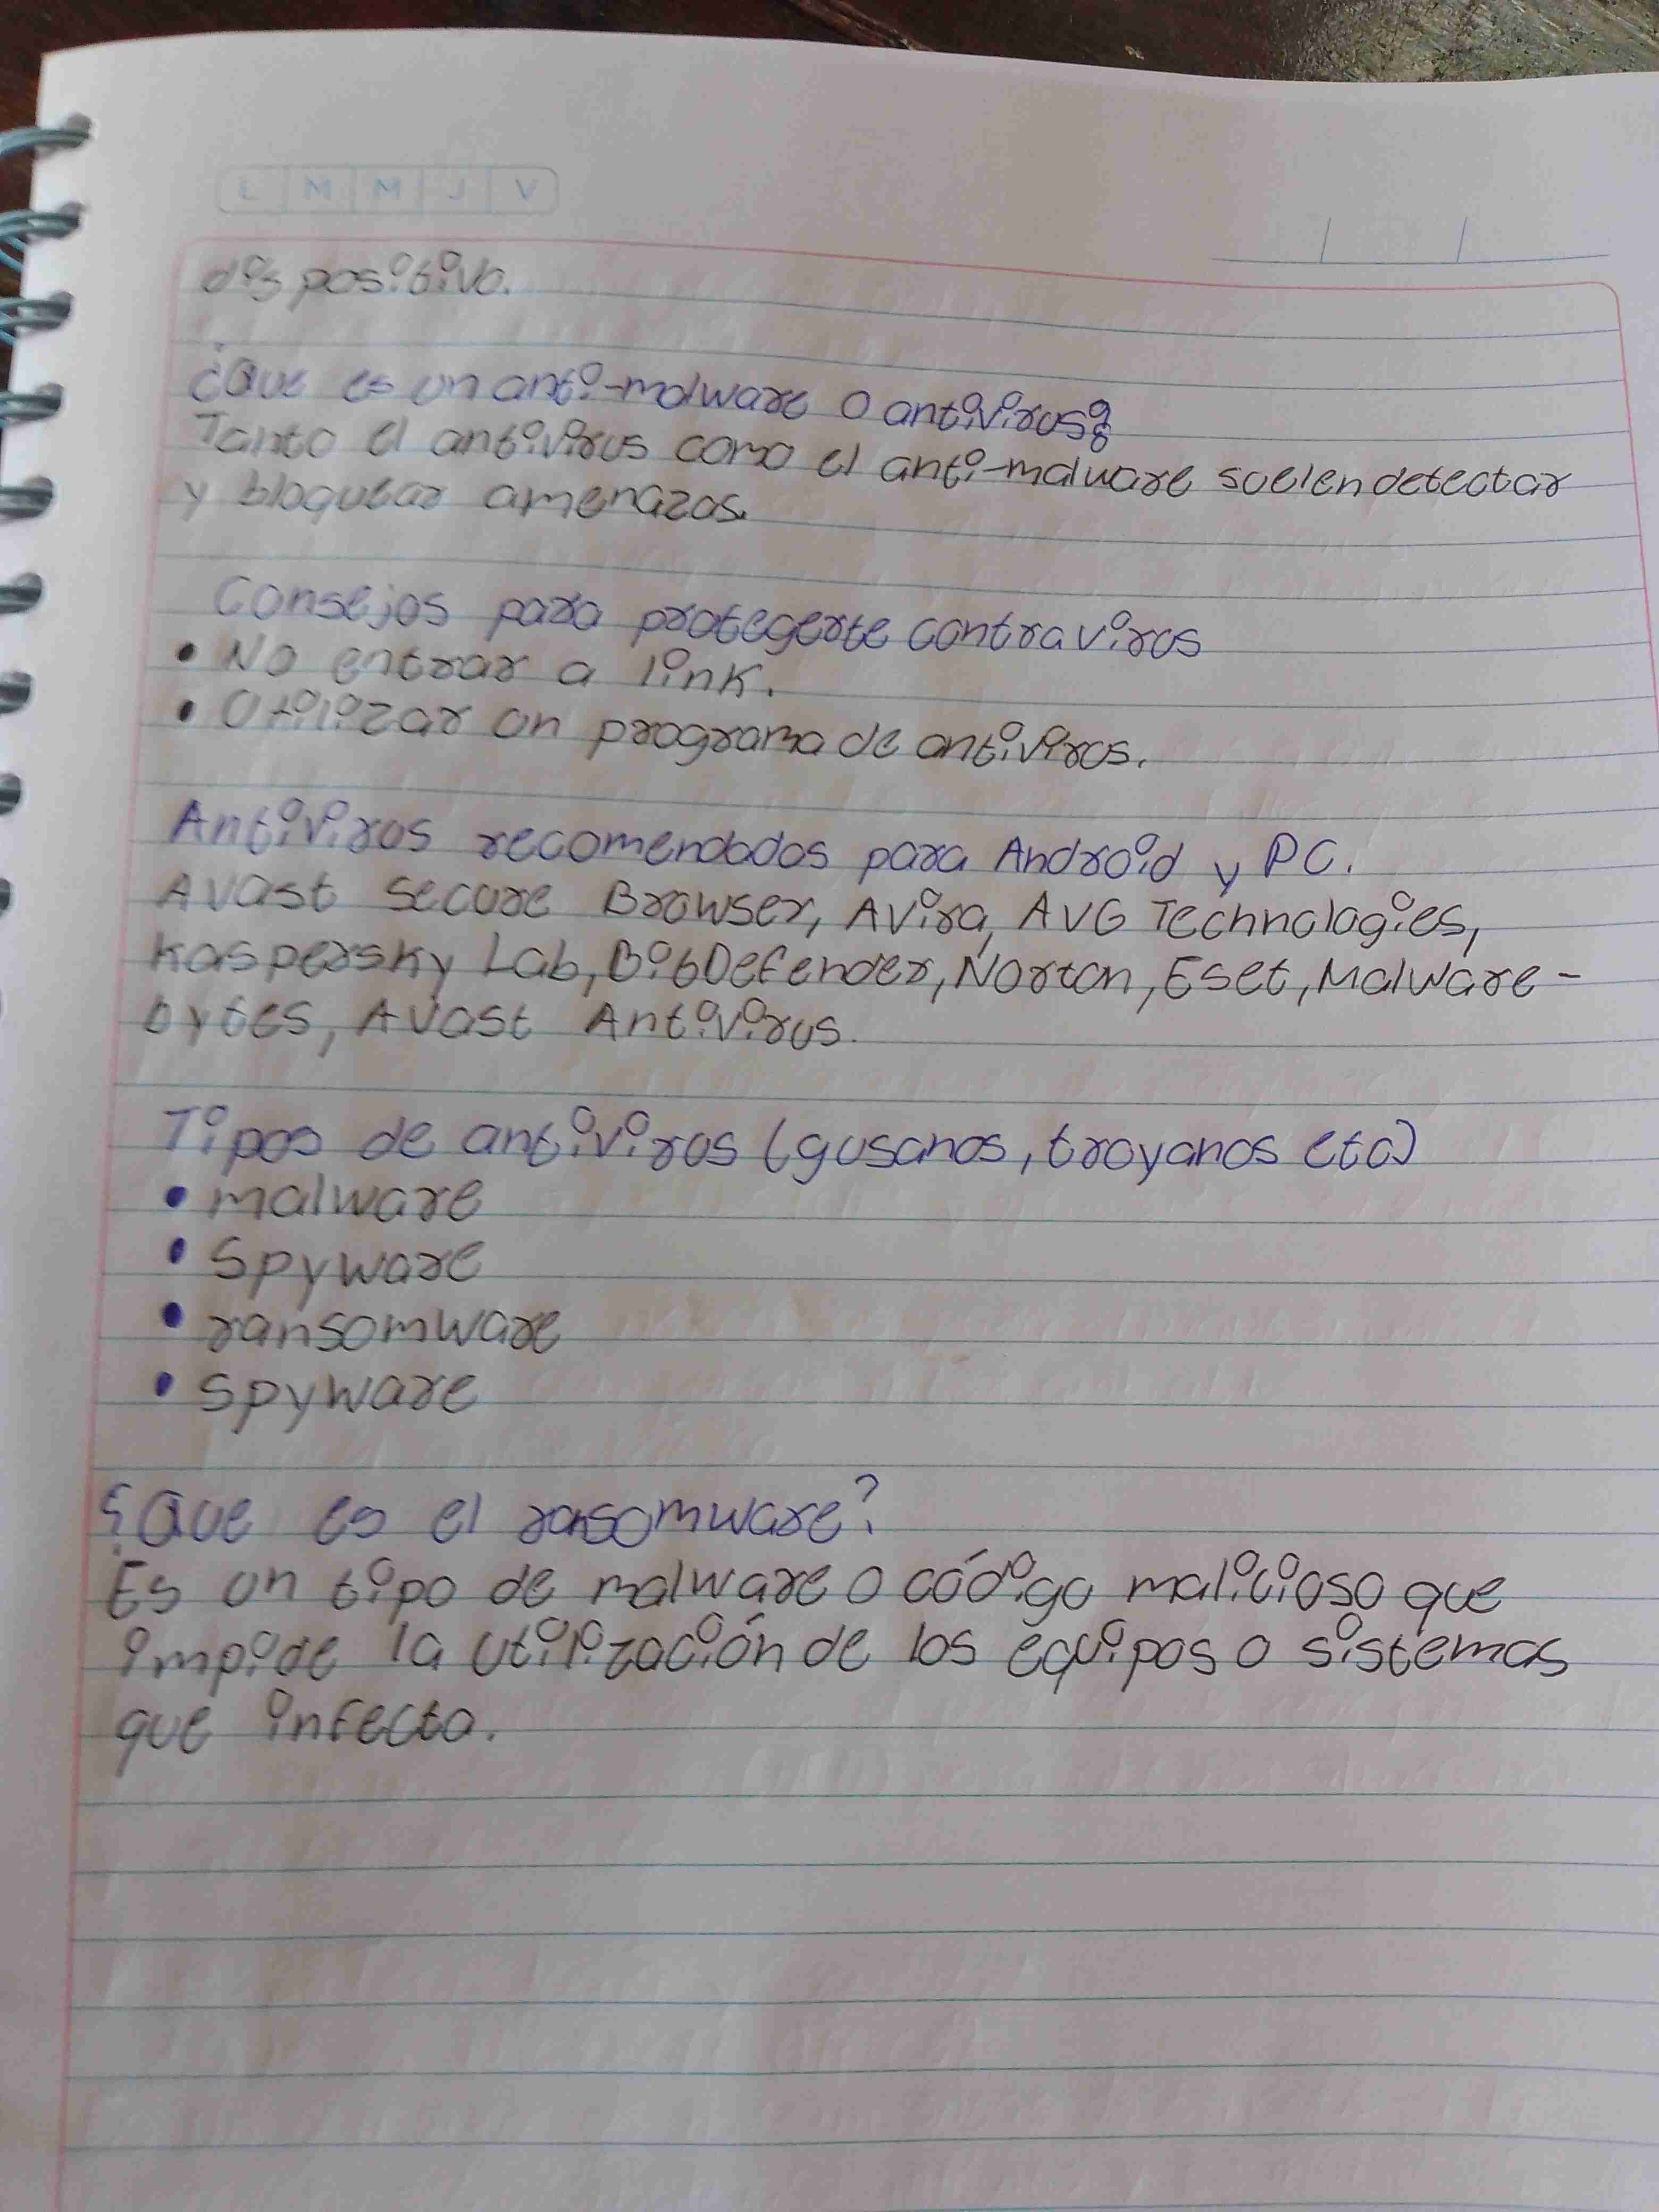 L M M J V
dispositivo.
¿Que es un anti-malware o antivirus?
Tanto el antivirus como el anti-malware suelen detectar
y bloquear amenazas.
Consejos para protegerte contra virus
• No entrar a link.
• Utilizar un programa de antivirus.
Antivirus recomendados para Android y PC.
Avast Secure Browser, Avira, AVG Technologies,
Kaspersky Lab, BitDefender, Norton, Eset, Malware-
bytes, Avast Antivirus.
Tipos de antivirus (gusanos, troyanos etc)
• malware
• spyware
• ransomware
• spyware
¿Que es el ransomware?
Es un tipo de malware o código malicioso que
impide la utilización de los equipos o sistemas
que infecta.